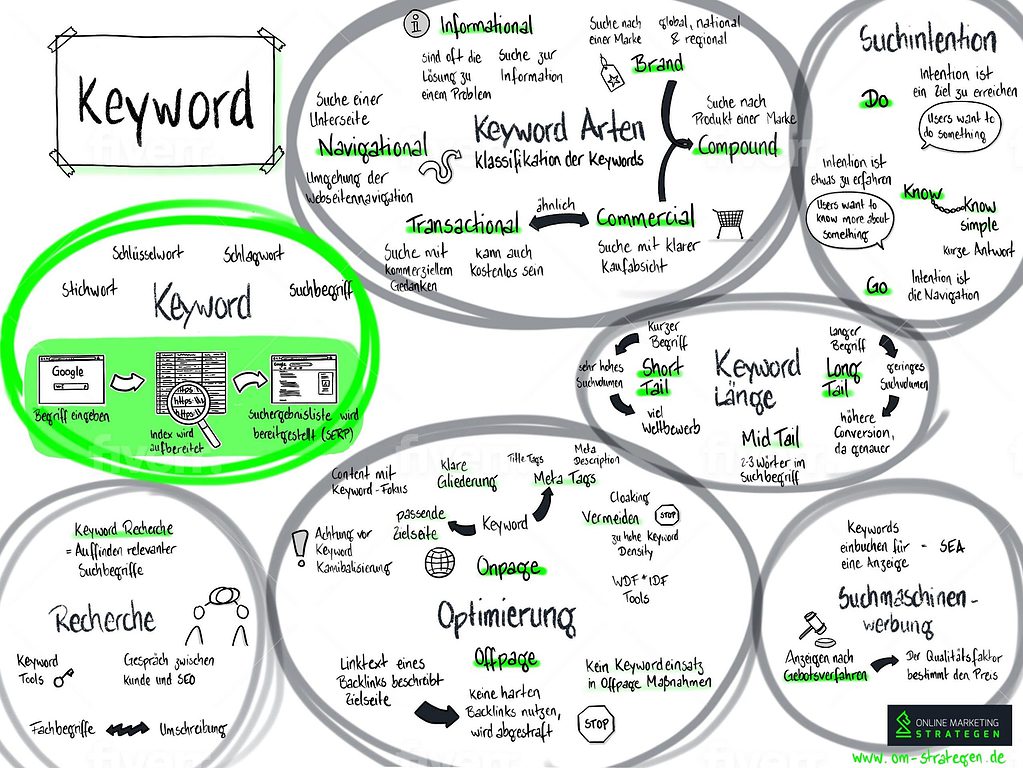 Keyword
Informational
sind oft die
Lösung zu
einem Problem
Suche zur
Information
Suche nach
einer Marke
global, national
& regional
Brand
Suche einer
Unterseite
Navigational
Umgehung der
Webseitennavigation
Keyword Arten
Klassifikation der Keywords
Suche nach
Produkt einer Marke
Compound
Transactional
ähnlich
Commercial
Suche mit
kommerziellem
Gedanken
kann auch
kostenlos sein
Suche mit klarer
Kaufabsicht
Suchintention
Intention ist
ein Ziel zu erreichen
Do
Users want to
do something
Intention ist
etwas zu erfahren
Know
Users want to
know more about
something
Know
simple
kurze Antwort
Go
Intention ist
die Navigation
Schlüsselwort
Schlagwort
Stichwort
Keyword
Suchbegriff
Google
https
https://
https://
Begriff eingeben
Index wird
aufbereitet
Suchergebnisliste wird
bereitgestellt (SERP)
Kurzer
Begriff
sehr hohes
Suchvolumen
Short
Tail
viel
Wettbewerb
Keyword
Länge
Mid Tail
2-3 Wörter im
Suchbegriff
Langer
Begriff
Long
Tail
geringes
Suchvolumen
höhere
Conversion,
da genauer
Keyword Recherche
= Auffinden relevanter
Suchbegriffe
Recherche
Keyword
Tools
Gespräch zwischen
Kunde und SEO
Fachbegriffe
Umschreibung
Content mit
Keyword-Fokus
Klare
Gliederung
Title Tags
Meta
Description
Meta Tags
passende
Zielseite
Keyword
Cloaking
Vermeiden
STOP
zu hohe Keyword
Density
Achtung vor
Keyword
Kannibalisierung
Onpage
WDF*IDF
Tools
Optimierung
Offpage
Linktext eines
Backlinks beschreibt
Zielseite
Keine harten
Backlinks nutzen,
wird abgestraft
STOP
Kein Keywordeinsatz
in Offpage Maßnahmen
Keywords
einbuchen für
eine Anzeige
- SEA
Suchmaschinen-
werbung
Anzeigen nach
Gebotsverfahren
Der Qualitätsfaktor
bestimmt den Preis
ONLINE MARKETING
STRATEGEN
www.om-strategen.de